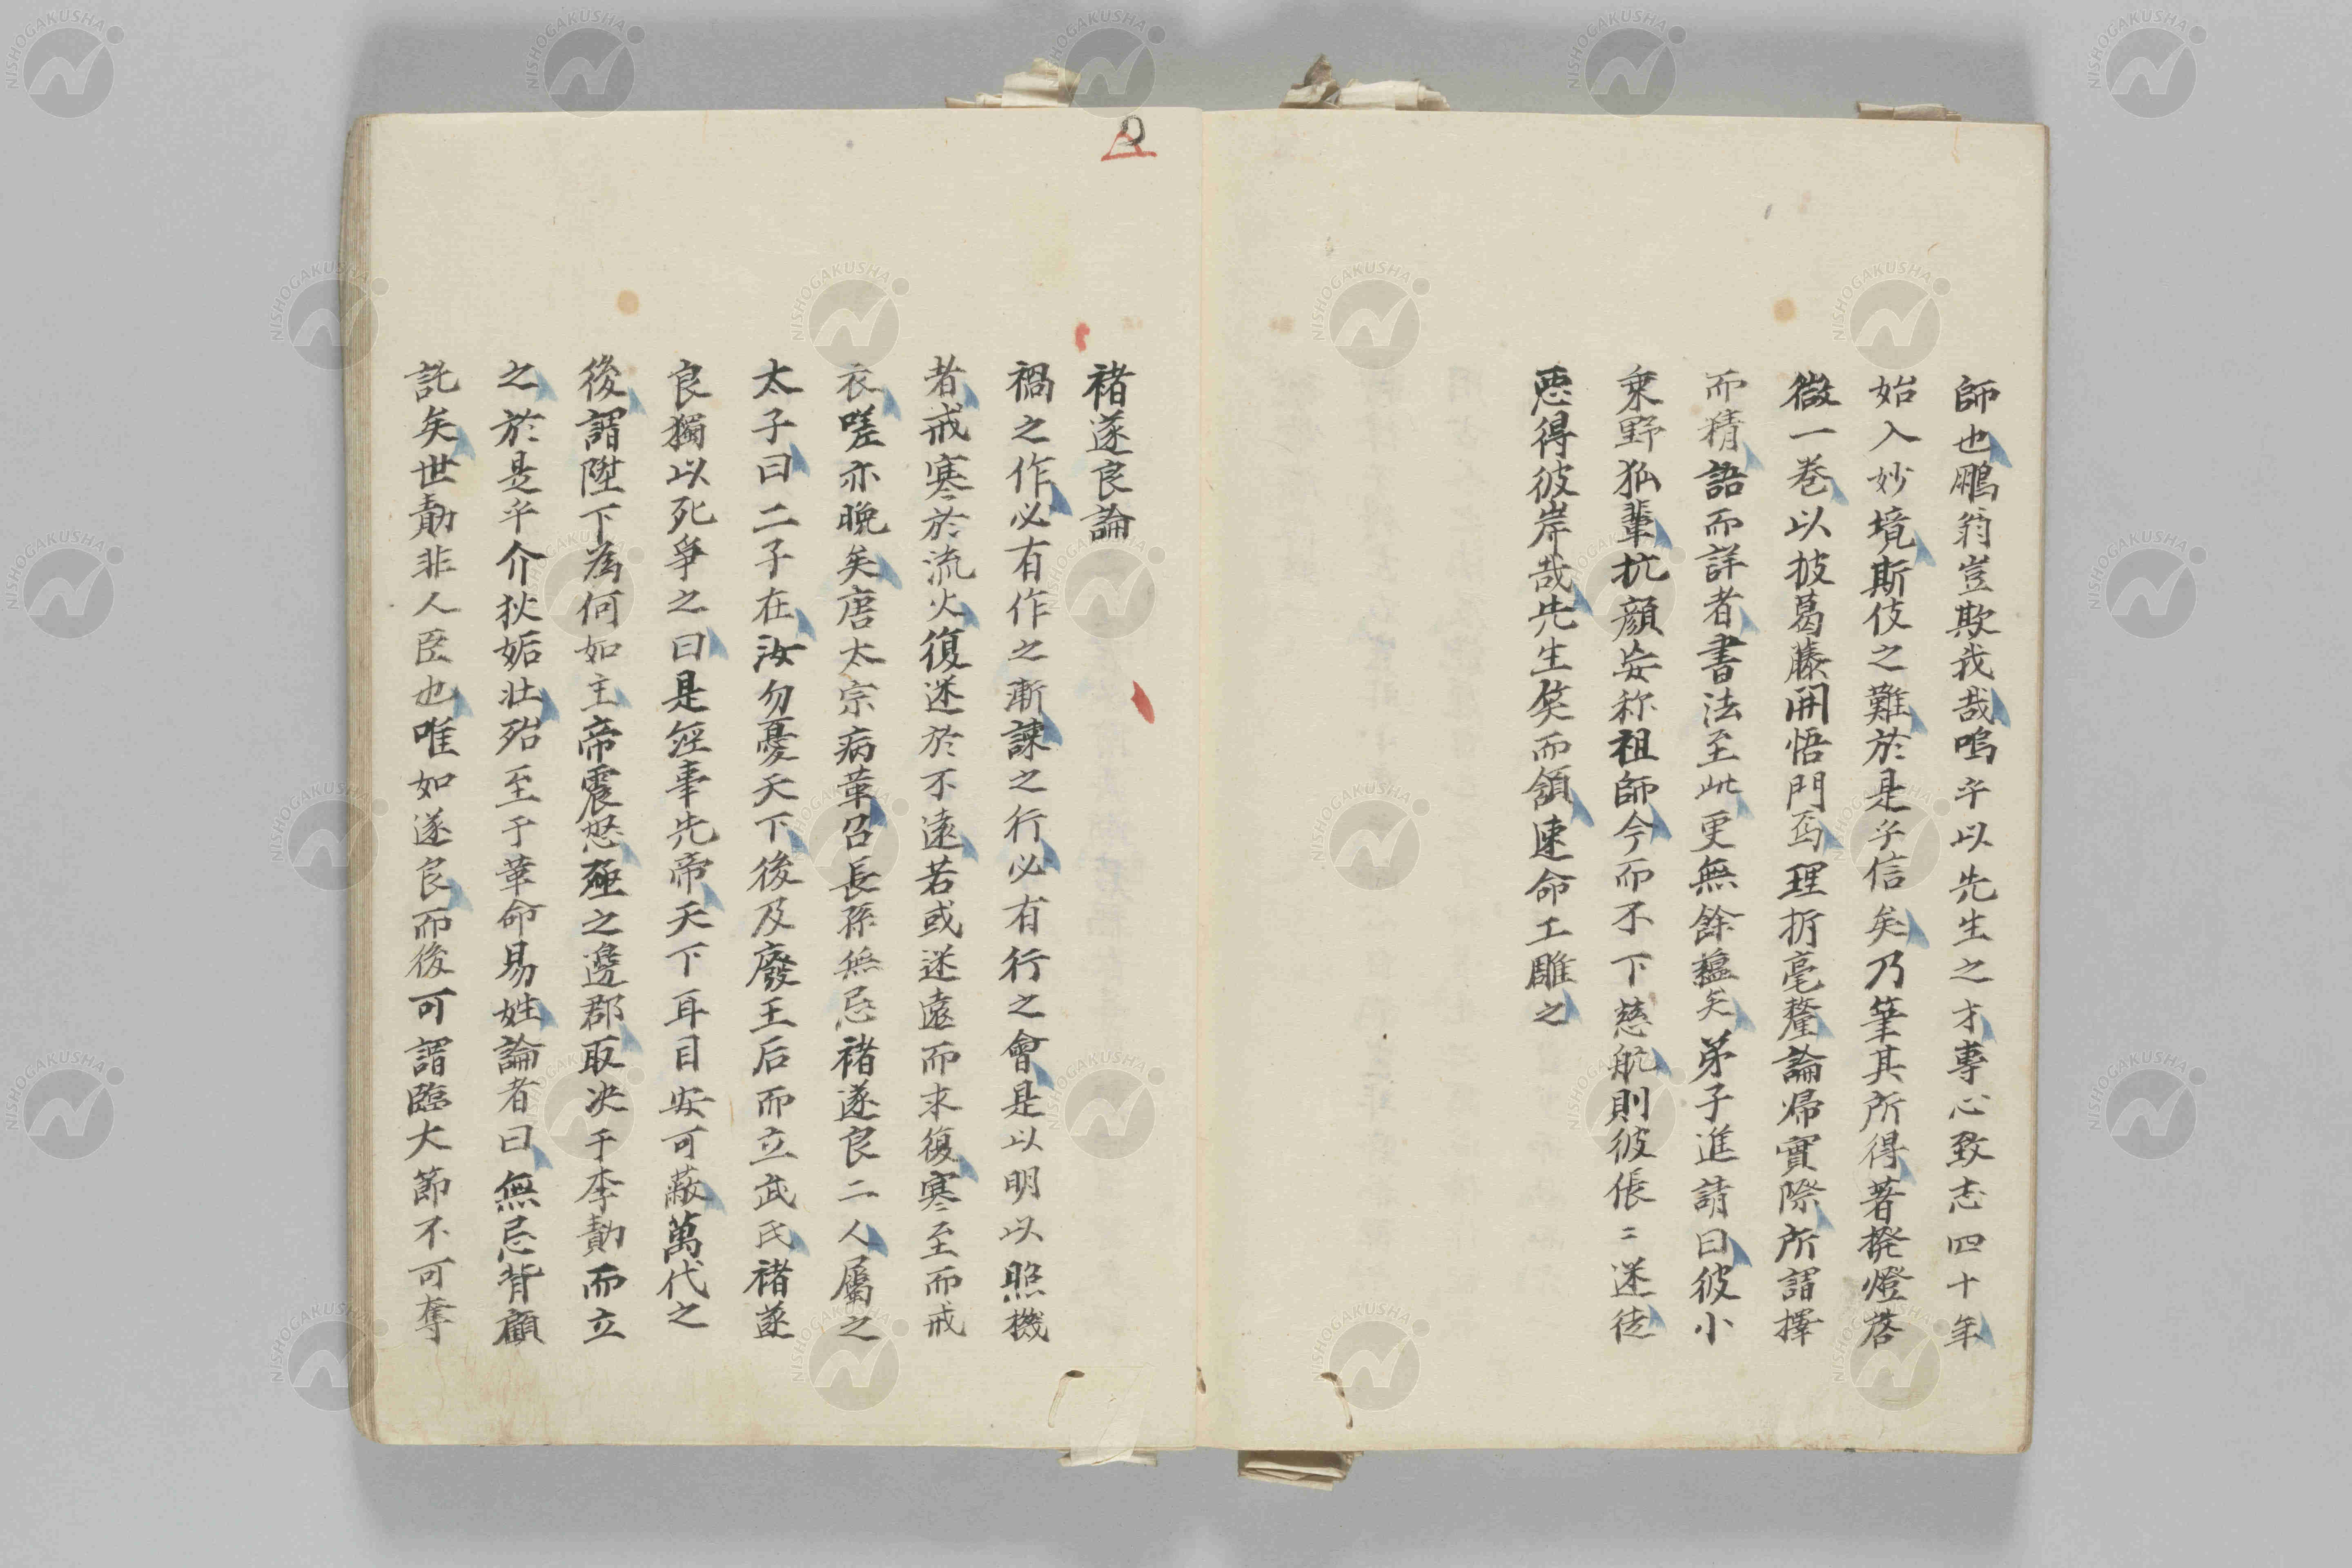 師也鵬翁豈欺我哉嗚乎以先生之才專心致志四十年
始入妙境斯伎之難於是乎信矣乃筆其所得著撥燈啓
微一卷以披葛藤開悟門焉理折毫釐論帰實際所謂擇
而精語而詳者書法至此更無餘蘊矣弟子進請曰彼小
乗野狐輩抗顔妄称祖師今而不下慈航則彼倀〻迷徒
悪得彼岸哉先生笑而頷速命工雕之
褚遂良論
禍之作必有作之漸諫之行必有行之會是以明以照機
者戒寒於流火復迷於不遠若或迷遠而求復寒至而戒
衣嗟亦晩矣唐太宗病革召長孫無忌褚遂良二人屬之
太子曰二子在汝勿憂天下後及廢王后而立武氏褚遂
良獨以死争之曰是經事先帝天下耳目安可蔽萬代之
後謂陛下為何如主帝震怒殛之邊郡取决于李勣而立
之於是乎介狄姤壮殆至于革命易姓論者曰無忌背顧
託矣世勣非人臣也唯如遂良而後可謂臨大節不可奪
NISHOGAKUSHA